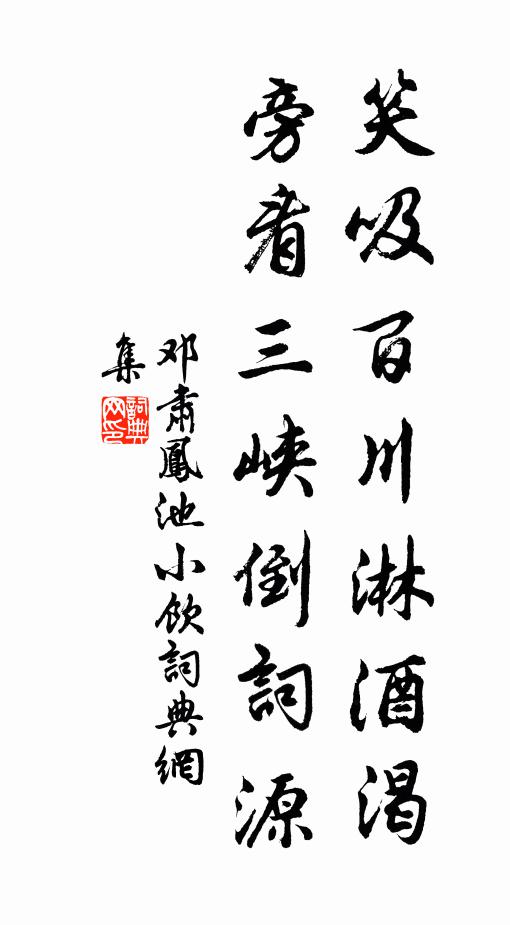 笑吸百川淋酒渴
旁看三峡倒詞源
邓肅鳳池小飲詞典網
集
詞典
网印